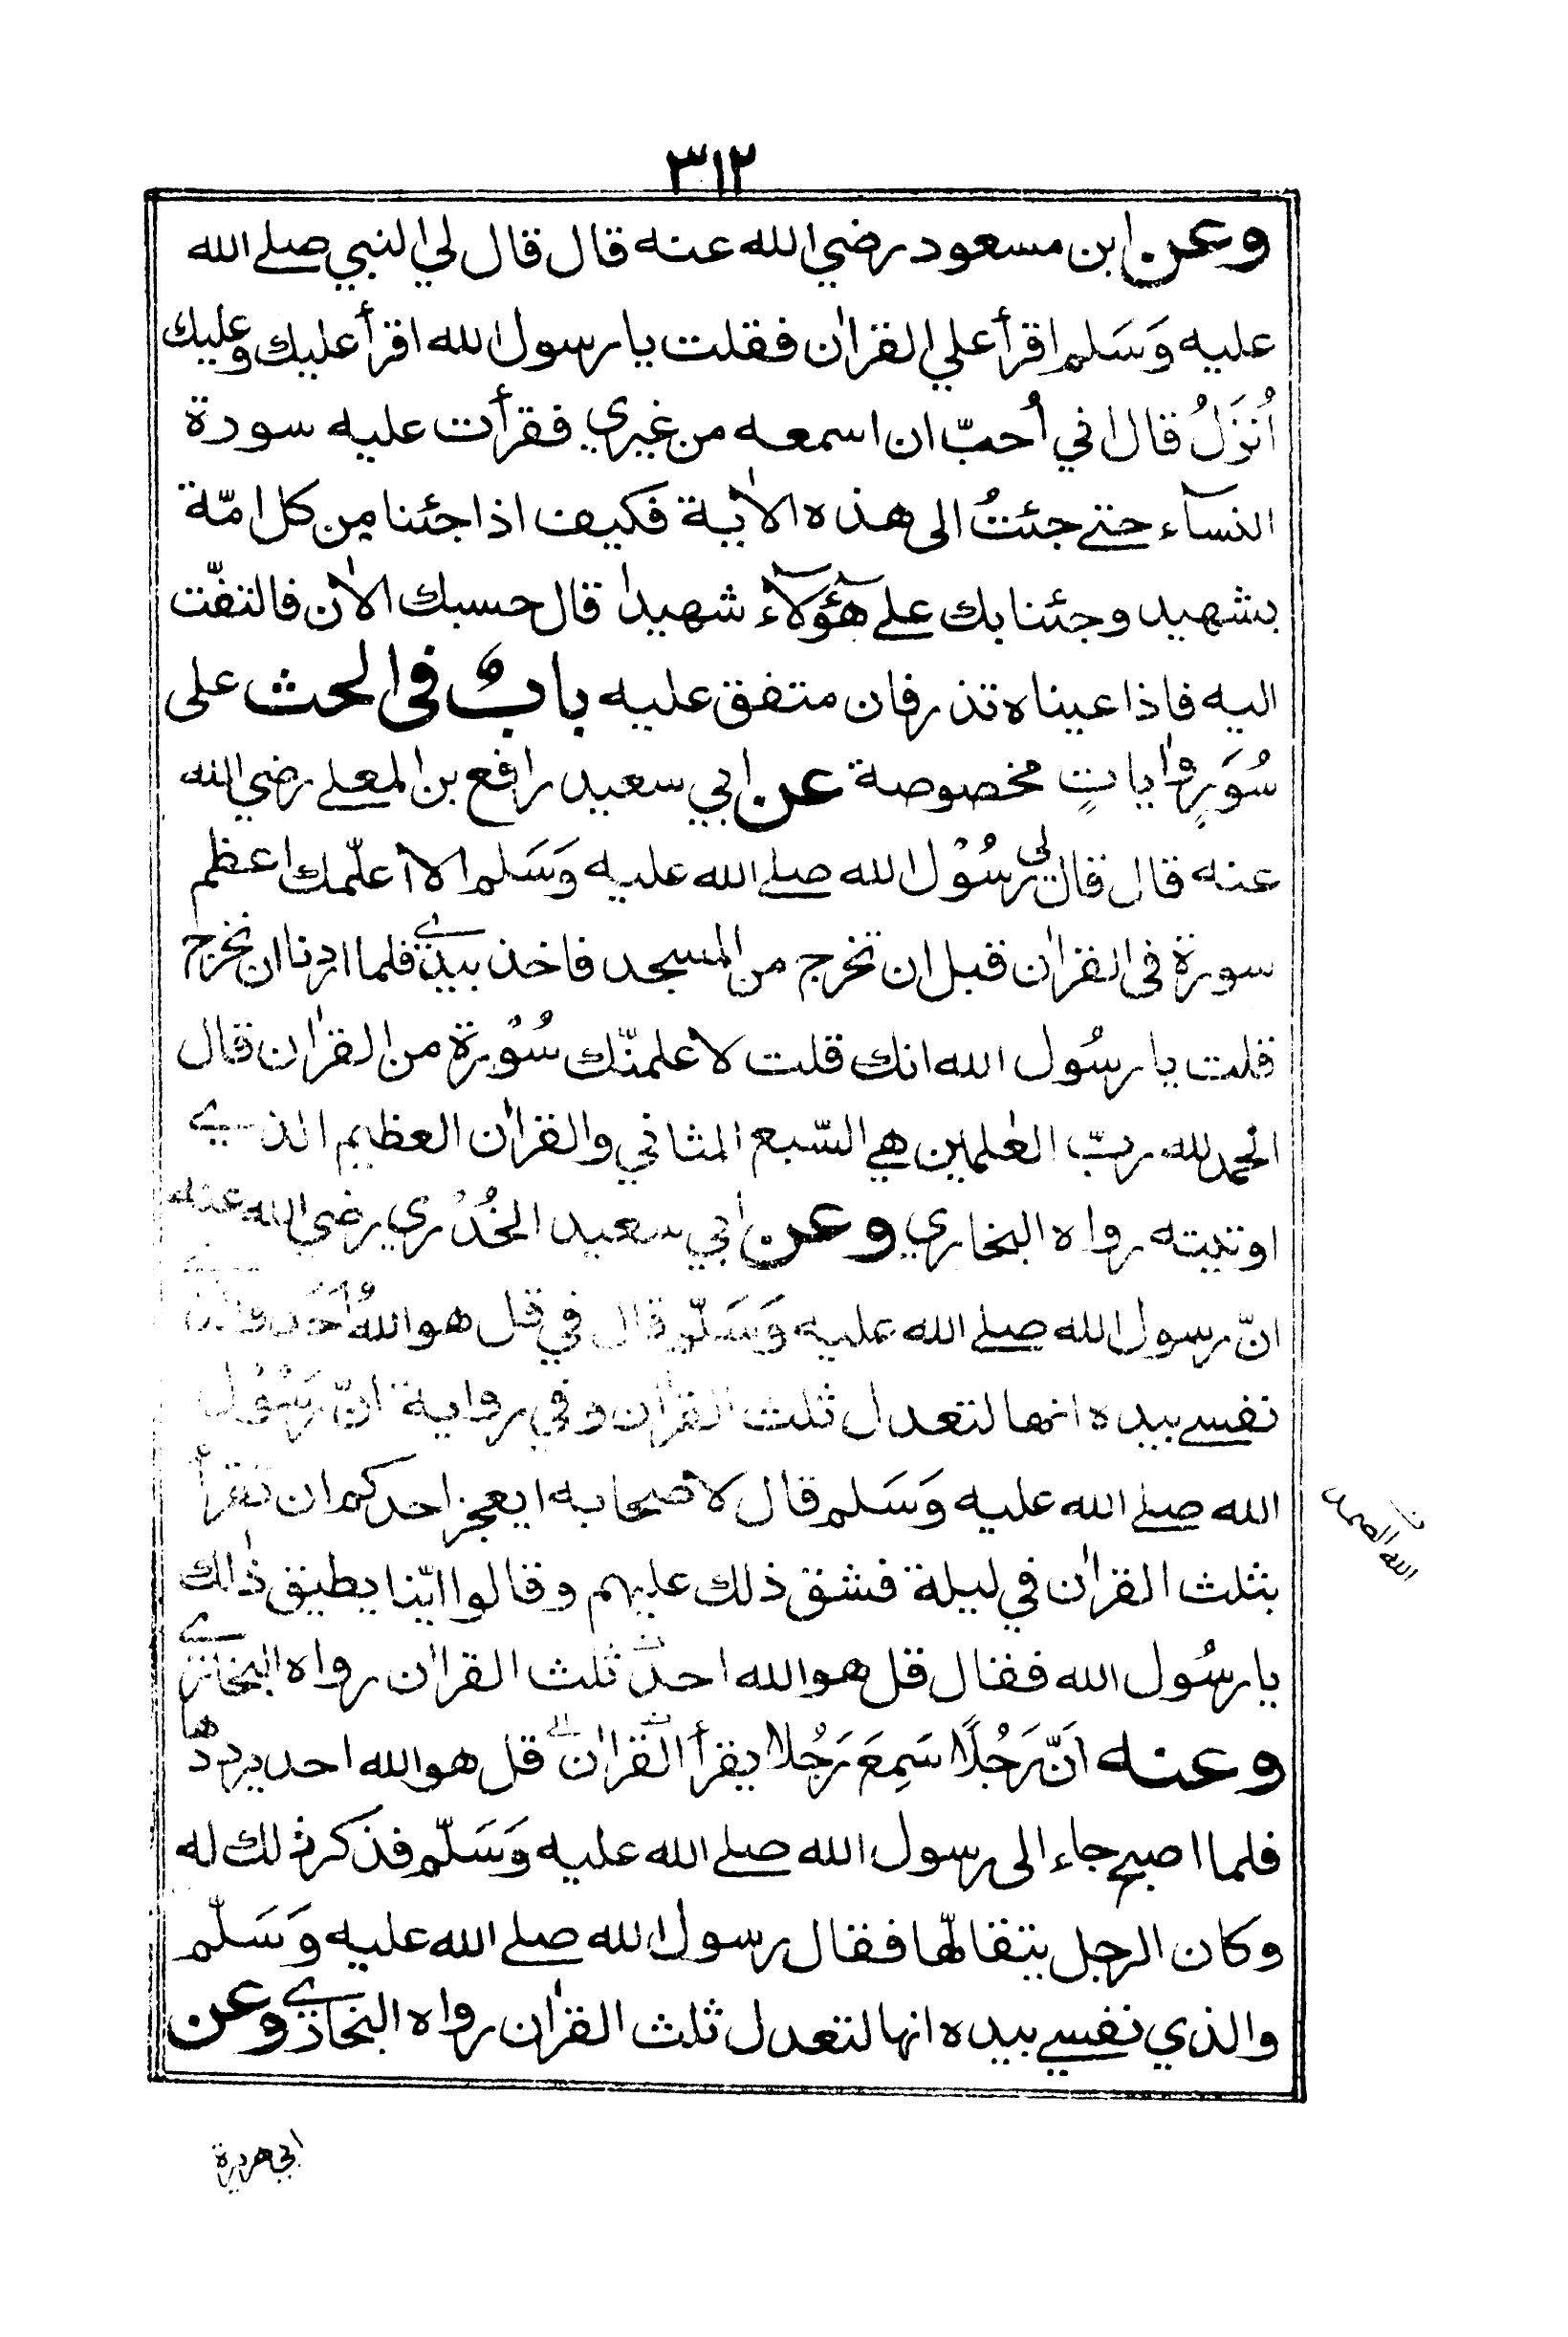 ٣١٢
وعن ابن مسعود رضي الله عنه قال قال لي النبي صلى الله
عليه وَسَلم اقرأ علي القرآن فقلت يا رسول الله اقرأ عليك وعليك
اُنزَلُ قال اني اُحبّ ان اسمعه من غيري فقرأت عليه سورة
النسآء حتى جئتُ الى هذه الاٰية فكيف اذا جئنا من كل امّة
بشهيد وجئنا بك على هٓؤلآء شهيداً قال حسبك الاٰن فالتفّت
اليه فاذا عيناه تذرفان متفق عليه بابٌ في الحث على
سُوَرٍ واٰياتٍ مخصوصة عن ابي سعيد رافع بن المعلى رضي الله
عنه قال قال لي رسُوْل الله صلى الله عليه وَسَلم الا اعلّمك اعظم
سورة في القراٰن قبل ان تخرج من المسجد فاخذ بيدي فلما اردنا ان نخرج
قلت يا رسُول الله انك قلت لاعلمنّك سُوْرة من القراٰن قال
الحمد لله ربّ العٰلمين هي السّبع المثاني والقراٰن العظيم الذي
اوتيته رواه البخاري وعن ابي سعيد الخُدْري رضي الله عنه
انّ رسول الله صلى الله عليه وَسَلّم قال في قل هو اللهُ اَحَد والذي
نفسي بيده انها لتعدل ثلث القراٰن وفي رواية انّ رَسُوْل
الله صلى الله عليه وَسَلم قال لاصحابه ايعجز احدكم ان نقرأ
بثلث القراٰن في ليلة فشق ذلك عليهم وقالوا ايّنا يطيق ذٰلك
يا رسُول الله فقال قل هو الله احد ثلث القراٰن رواه البخاري
وعنه اَنّ رَجُلًا سَمِعَ رَجُلا يقرأ القراٰن قل هو الله احد يردّدها
فلما اصبح جاء الى رسول الله صلى الله عليه وَسَلّم فذكر ذلك له
وكان الرجل يتقالّها فقال رسول الله صلى الله عليه وَسَلّم
والذي نفسي بيده انها لتعدل ثلث القراٰن رواه البخاري وعن
الله الصمد
ابي هريرة